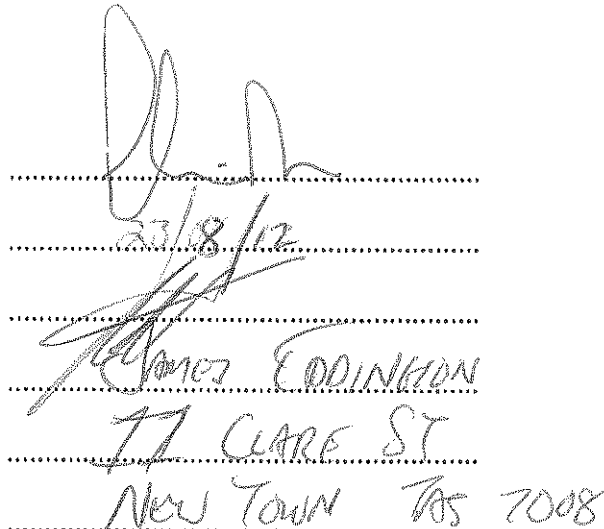 23/8/12
JAMES EDDINGTON
CLARE ST
NEW TOWN TAS 7008